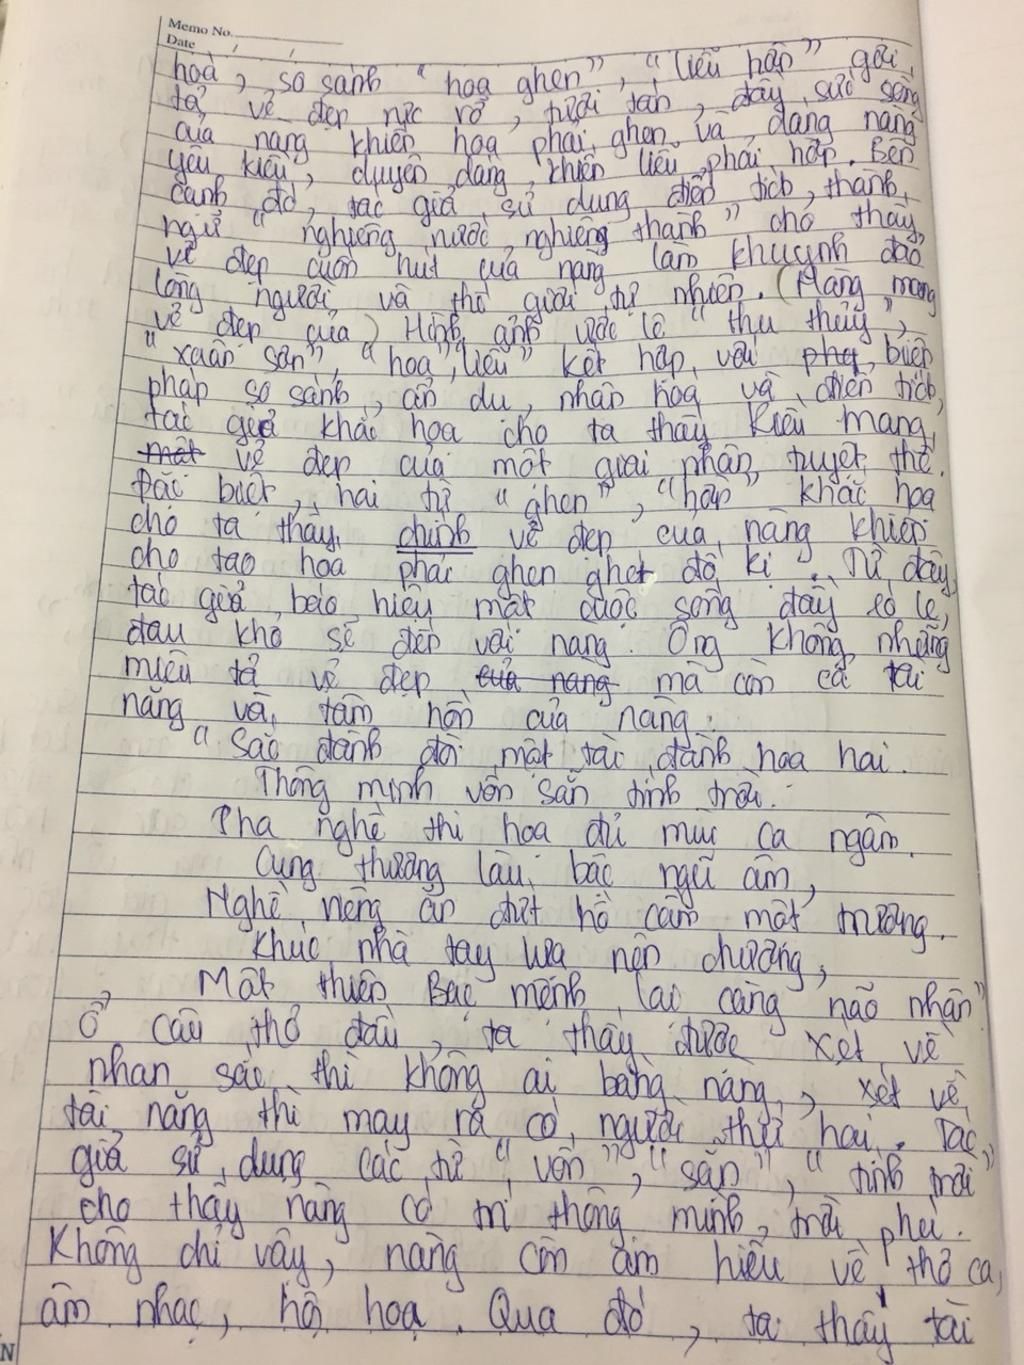 Memo No.
Date / /
hoá, so sánh "hoa ghen", "liễu hờn" gợi
tả vẻ đẹp rực rỡ, tươi tắn, đầy sức sống
của nàng khiến hoa phải ghen và dáng nàng
yêu kiều, duyên dáng khiến liễu phải hờn. Bên
cạnh đó, tác giả sử dụng điển tích, thành
ngữ "nghiêng nước nghiêng thành" cho thấy
vẻ đẹp cuốn hút của nàng làm khuynh đảo
lòng người và thế giới tự nhiên. (Mang mang
vẻ đẹp của) Hình ảnh ước lệ "thu thủy",
"xuân sơn", "hoa", liễu" kết hợp với phq biện
pháp so sánh, ẩn dụ, nhân hoá và điển tích,
tác giả khắc họa cho ta thấy Kiều mang
một vẻ đẹp của một giai nhân tuyệt thế.
Đặc biệt, hai từ "ghen", "hờn" khắc họa
cho ta thấy chính vẻ đẹp của nàng khiến
cho tạo hoá phải ghen ghét đố kị. Từ đây,
tác giả báo hiệu một cuộc sống đầy éo le,
đau khổ sẽ đến với nàng. Ông không những
miêu tả vẻ đẹp của nàng mà còn cả tài
năng và tâm hồn của nàng:
"Sắc đành đòi một tài đành hoạ hai.
Thông minh vốn sẵn tính trời.
Pha nghề thi hoạ đủ mùi ca ngâm.
Cung thương lầu bậc ngũ âm,
Nghề riêng ăn đứt hồ cầm một trương.
Khúc nhà tay lựa nên chương,
Một thiên Bạc mệnh lại càng não nhân"
Ở câu thơ đầu, ta thấy được xét về
nhan sắc thì không ai bằng nàng, xét về
tài năng thì may ra có người thứ hai. Tác
giả sử dụng các từ "vốn", "sẵn", "tính trời"
cho thấy nàng có trí thông minh trời phú.
Không chỉ vậy, nàng còn am hiểu về thơ ca,
âm nhạc, hội hoạ. Qua đó, ta thấy tài
N